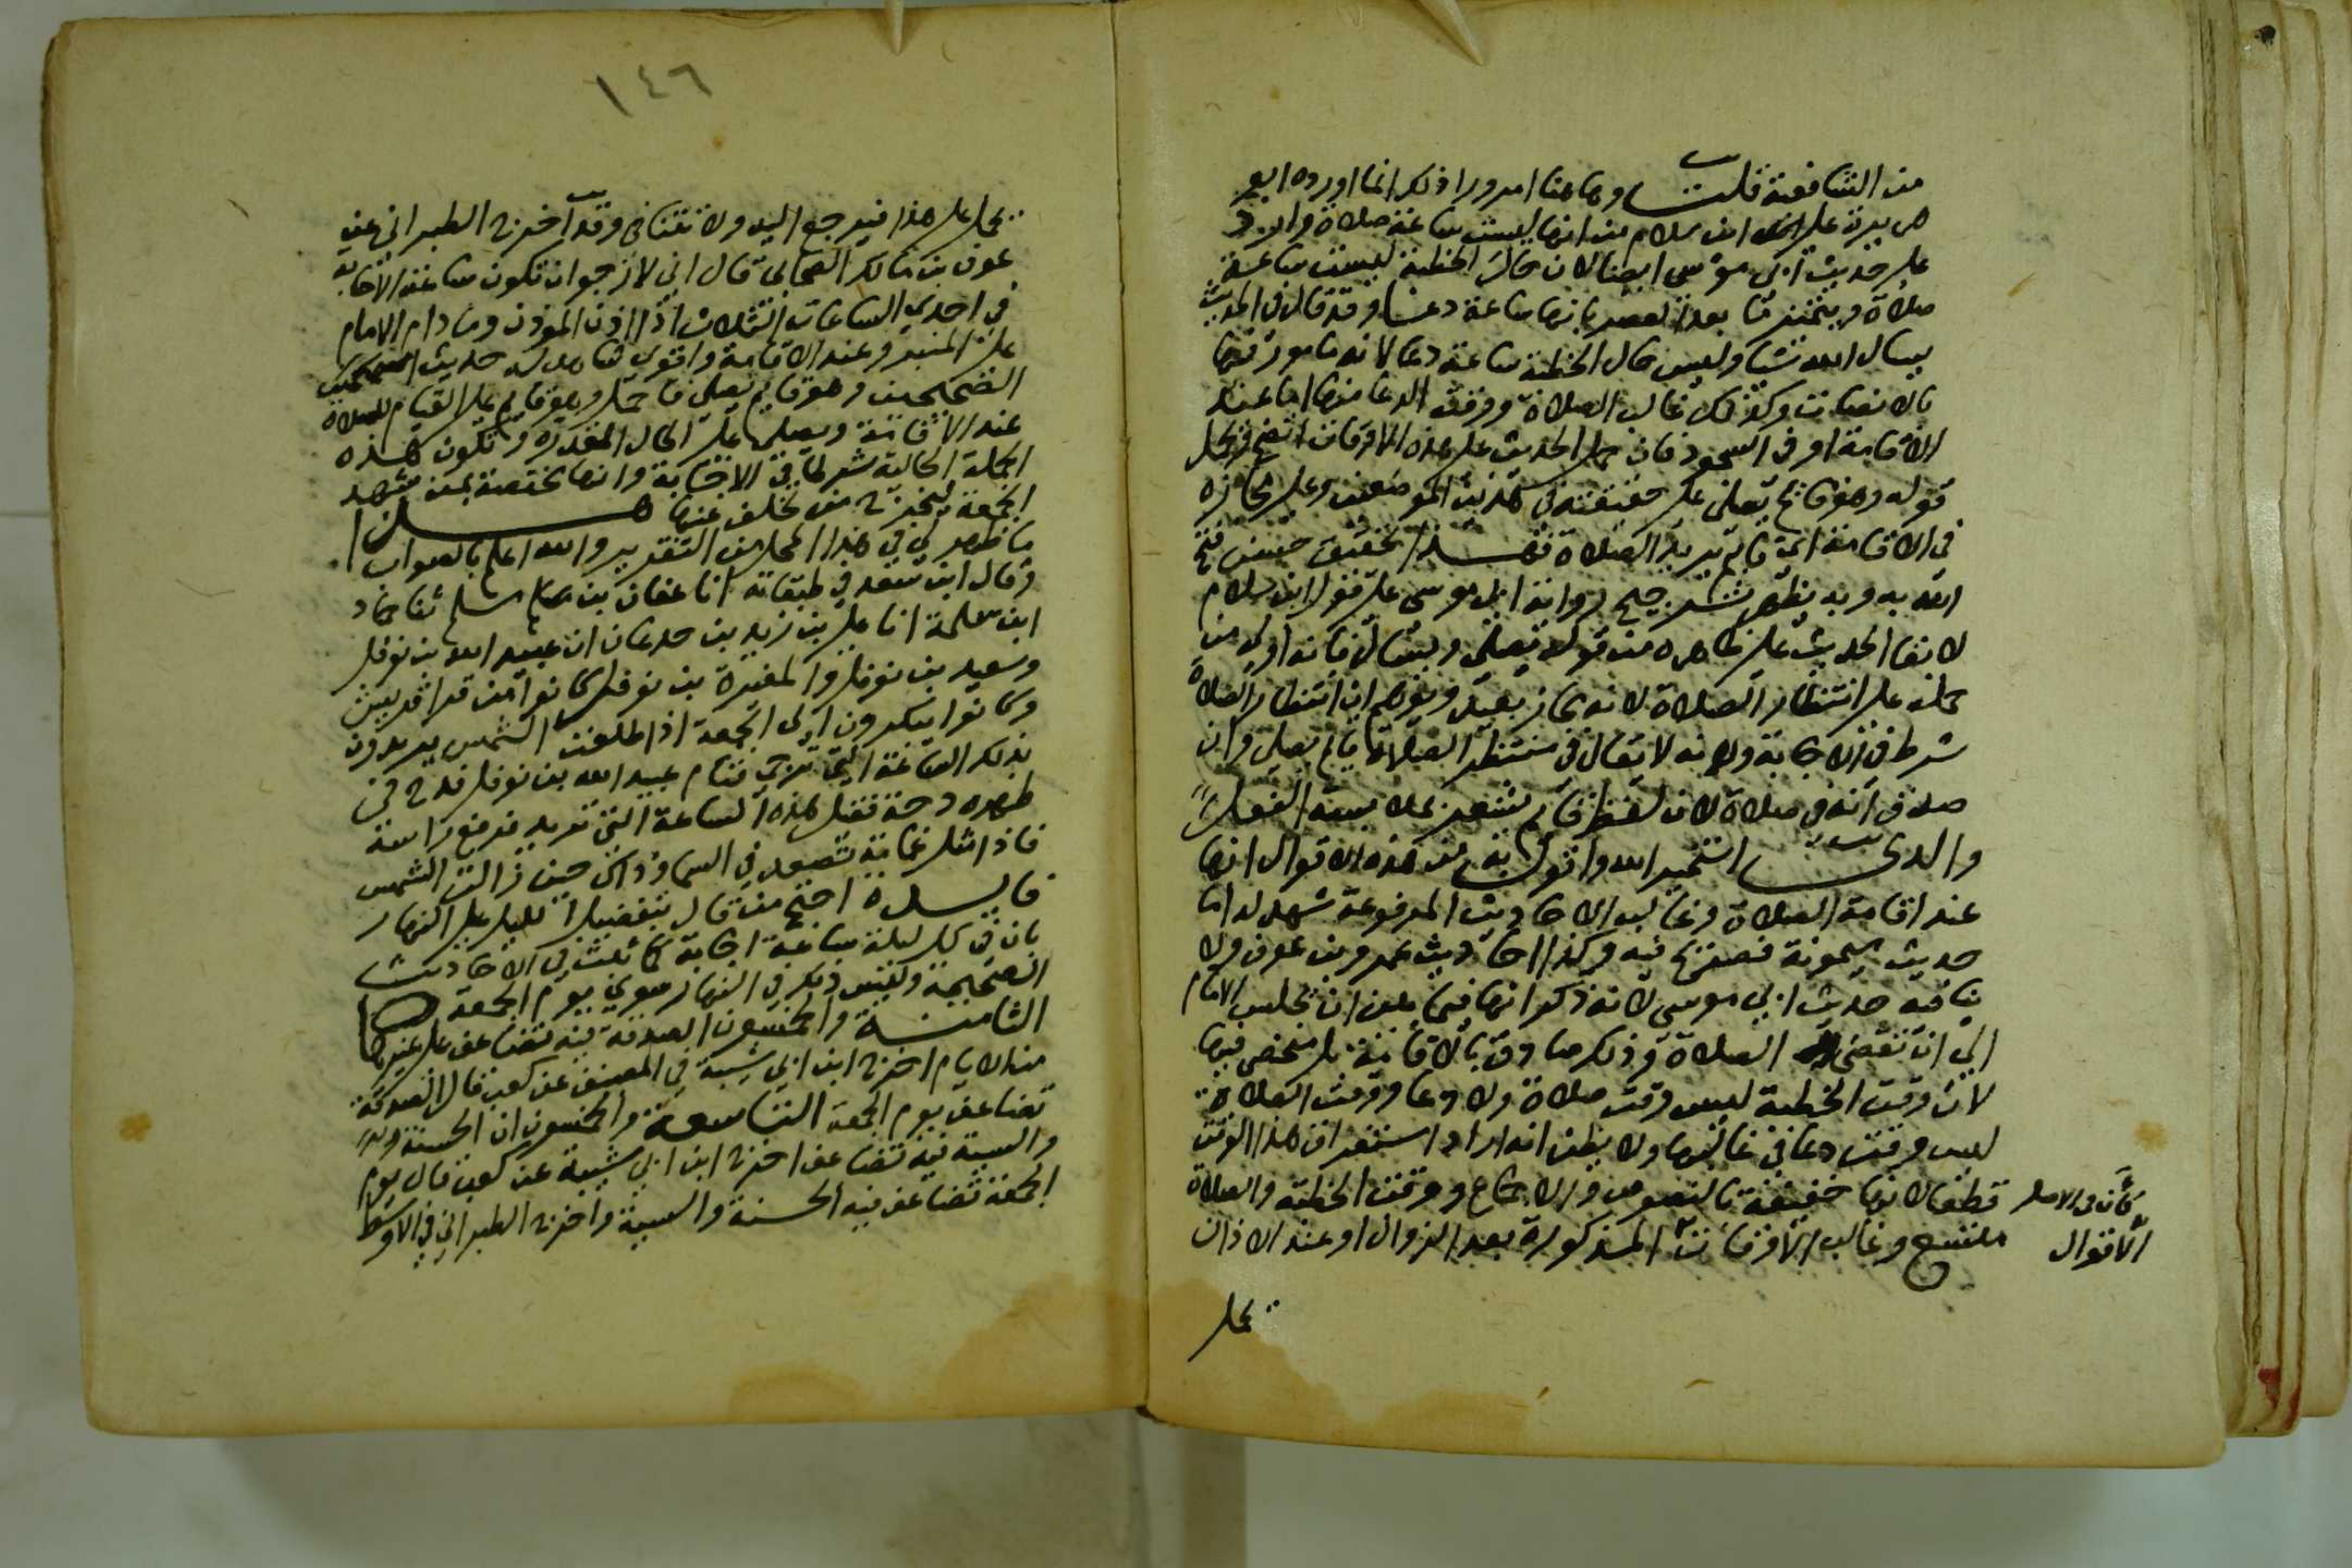 من الشافعية قلت وهاهنا امر وراذلك انما اورده ابو
هريرة على ابن سلام من انها ليست ساعة صلاة وارد
على حديث ابي موسى ايضا لان حال الخطبة ليست ساعة
صلاة ويتميز ما بعد العصر بانها ساعة دعا وقد قال في الحديث
يسال الله شيا وليس حال الخطبة ساعة دعا لانه مامور فيها
بالانصات وكذلك غالب الصلاة ووقت الدعا منها اما عند
الاقامة او في السجود فان حمل الحديث على هذه الاوقات اتضح وتحمل
قوله وهو قايم يصلي على حقيقته في هذين الموضعين وعلى مجازه
في الاقامة اي قايم يريد الصلاة فهذا تحقيق حسن فتح
الله به وبه يظهر ترجيح رواية ابي موسى على قول ابن سلام
لابقا الحديث على ظاهره من قوله يصلي ويسال فانه اولى من
حمله على انتظار الصلاة لانه مجاز بعيد ويوهم ان انتظار الصلاة
شرط في الاجابة ولانه لا يقال في منتظر الصلاة قايم يصلي وان
صدق انه في صلاة لان لفظ قايم يشعر بملابسة الفعل
والذي استخير الله واقول به من هذه الاقوال انها
عند اقامة الصلاة وغالب الاحاديث المرفوعة تشهد له اما
حديث ميمونة فصريح فيه وكذا احاديث عمرو بن عوف ولا
ينافيه حديث ابي موسى لانه ذكر انها فيما بين ان يجلس الامام
الى ان تنقضي الصلاة وذلك صادق بالاقامة بل منحصر فيها
لان وقت الخطبة ليس وقت صلاة ولا دعا ووقت الصلاة
ليس وقت دعا في غالبها ولا يظن انه اراد استغراق هذا الوقت
قطعا لانها خفيفة بالنصوص والاجماع ووقت الخطبة والصلاة
متسع وغالب الاوقات المذكورة بعد الزوال او عند الاذان
كأن في الاصل
الأقوال
تحمل
١٤٦
تحمل على هذا فيرجع اليه ولا تتنافى وقد اخرج الطبراني عن
عوف بن مالك الصحابي قال اني لارجو ان تكون ساعة الاجابة
في احدى الساعات الثلاث اذا اذن الموذن وما دام الامام
على المنبر وعند الاقامة واقوى شاهد له حديث
الصحيحين وهو قايم يصلي فاحمل وهو قايم على القيام للصلاة
عند الاقامة ويصلي على الحال المقدرة وتكون هذه
الجملة الحالية شرطا في الاجابة وانها مختصة بمن شهد
الجمعة ليخرج من تخلف عنها هذا
ما ظهر لي في هذا المحل من التقرير والله اعلم بالصواب
وقال ابن سعد في طبقاته انا عفان بن مسلم ثنا حماد
ابن سلمة انا علي بن زيد بن جدعان ان عبيد الله بن نوفل
وسعيد بن نوفل والمغيرة بن نوفل كانوا من قرا قريش
وكانوا يبكرون الى الجمعة اذا طلعت الشمس يريدون
بذلك الساعة التي ترجى فنام عبيد الله بن نوفل فدح في
ظهره دحة فقيل هذه الساعة التي تريد فرفع راسه
فاذا مثل غمامة تصعد في السما وذاك حين زالت الشمس
فايدة احتج من قال بتفضيل الليل على النهار
بان في كل ليلة ساعة اجابة كما ثبت في الاحاديث
الصحيحة وليس ذلك في النهار سوى يوم الجمعة
الثامنة والخمسون الصدقة فيه تضاعف على غيرها
من الايام اخرج ابن ابي شيبة في المصنف عن كعب قال الصدقة
تضاعف يوم الجمعة التاسعة والخمسون ان الحسنة
والسيئة فيه تضاعف اخرج ابن ابي شيبة عن كعب قال يوم
الجمعة تضاعف فيه الحسنة والسيئة واخرج الطبراني في الاوسط